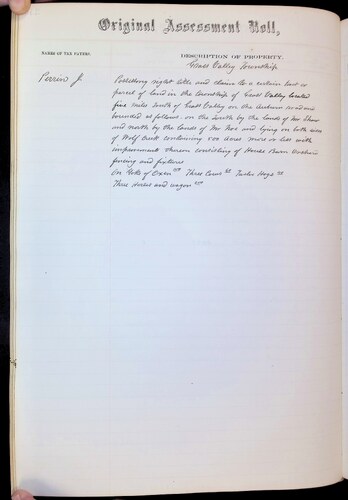 Original Assessment Roll,
NAMES OF TAX PAYERS.
DESCRIPTION OF PROPERTY.
Grass Valley Township
Perrin J.
Possessory right title and claim to a certain lot or
parcel of land in the township of Grass Valley located
five miles South of Grass Valley on the Auburn road and
bounded as follows. on the South by the lands of Mr Shaw
and north by the lands of Mr and lying on both sides
of Wolf Creek containing 100 acres more or less with
improvement thereon consisting of House Barn
fencing and fixtures
One Yoke of Oxen Three Cows Twelve Hogs
Three horses and wagon